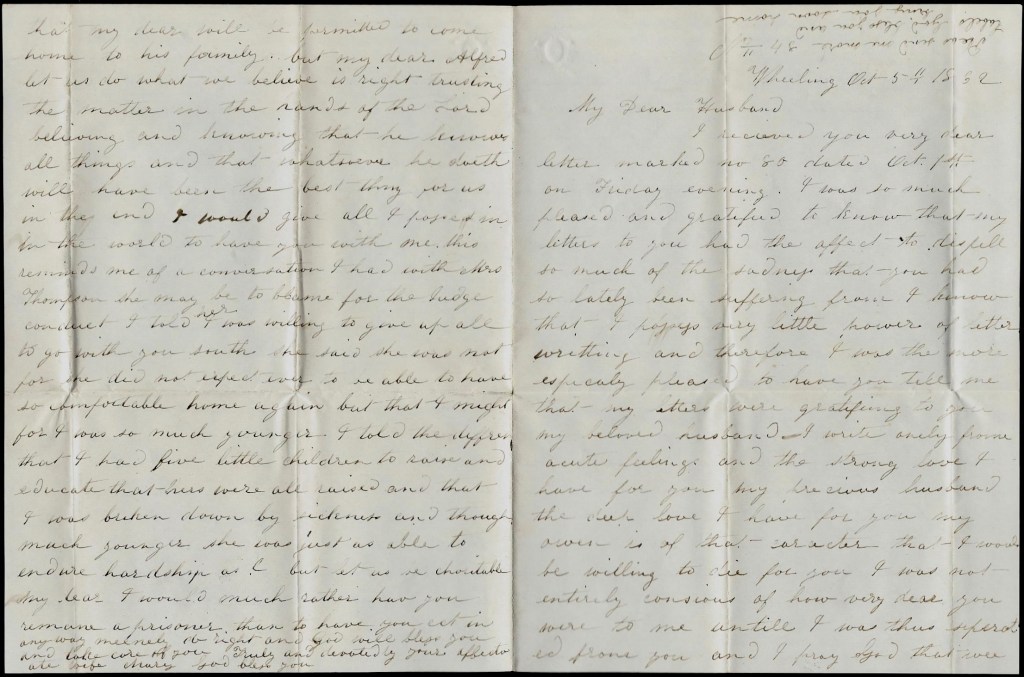 Please send me more
labels God bless you and
bring you soon home
Wheeling Oct 5th 1862
My Dear Husband
I recieved you very dear
letter marked no 30 dated Oct. 1st
on Friday evening. I was so much
pleased and gratified to know that my
letters to you had the affect to dispell
so much of the sadness that you had
so lately been suffering from I know
that I possess very little power of letter
writting and therefore I was the more
especialy pleased to have you tell me
that my letters were gratifing to you
my beloved husband I write onely frome
acute feelings and the strong love I
have for you my precious husband
the deep love I have for you my
owen is of that caracter that I would
be willing to die for you I was not
entirely conscious of how very dear you
were to me untill I was thus seperat
ed frome you and I pray God that wee
that my dear will be permitted to come
home to his family. but my dear Alfred
let us do what we believe is right trusting
the matter in the hands of the Lord
believing and knowing that he knows
all things and that whatsoever he doeth
will have been the best thing for us
in the end I would give all I possess in
in the world to have you with me. this
reminds me of a conversation I had with Mrs
Thompson she may be to blame for the Judge
conduct I told her I was willing to give up all
to go with you south she said she was not
for she did not expect ever to be able to have
so comfortable home again but that I might
for I was so much younger I told the differen
that I had five little children to raise and
educate that hers were all raised and that
I was broken down by sickness and though
much younger she was just as able to
endure hardship as I but let us be charitable
my dear I would much rather hav you
remane a prisoner than to have you act in
any way meenely do right and God will bless you
and take care of you Truly and devotedly yours affectio
ate wife Mary God bless you